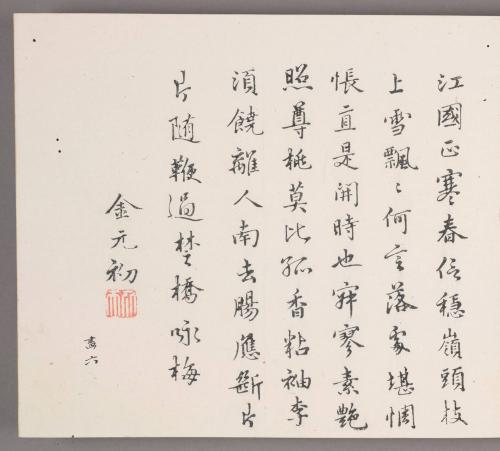 江國正寒春信穩嶺頭枝
上雪飄〻何言落處堪惆
悵直是開時也寂寥素艷
照尊桃莫比孤香粘袖李
須饒離人南去腸應斷片
片随鞭過楚橋咏梅
金元初
六